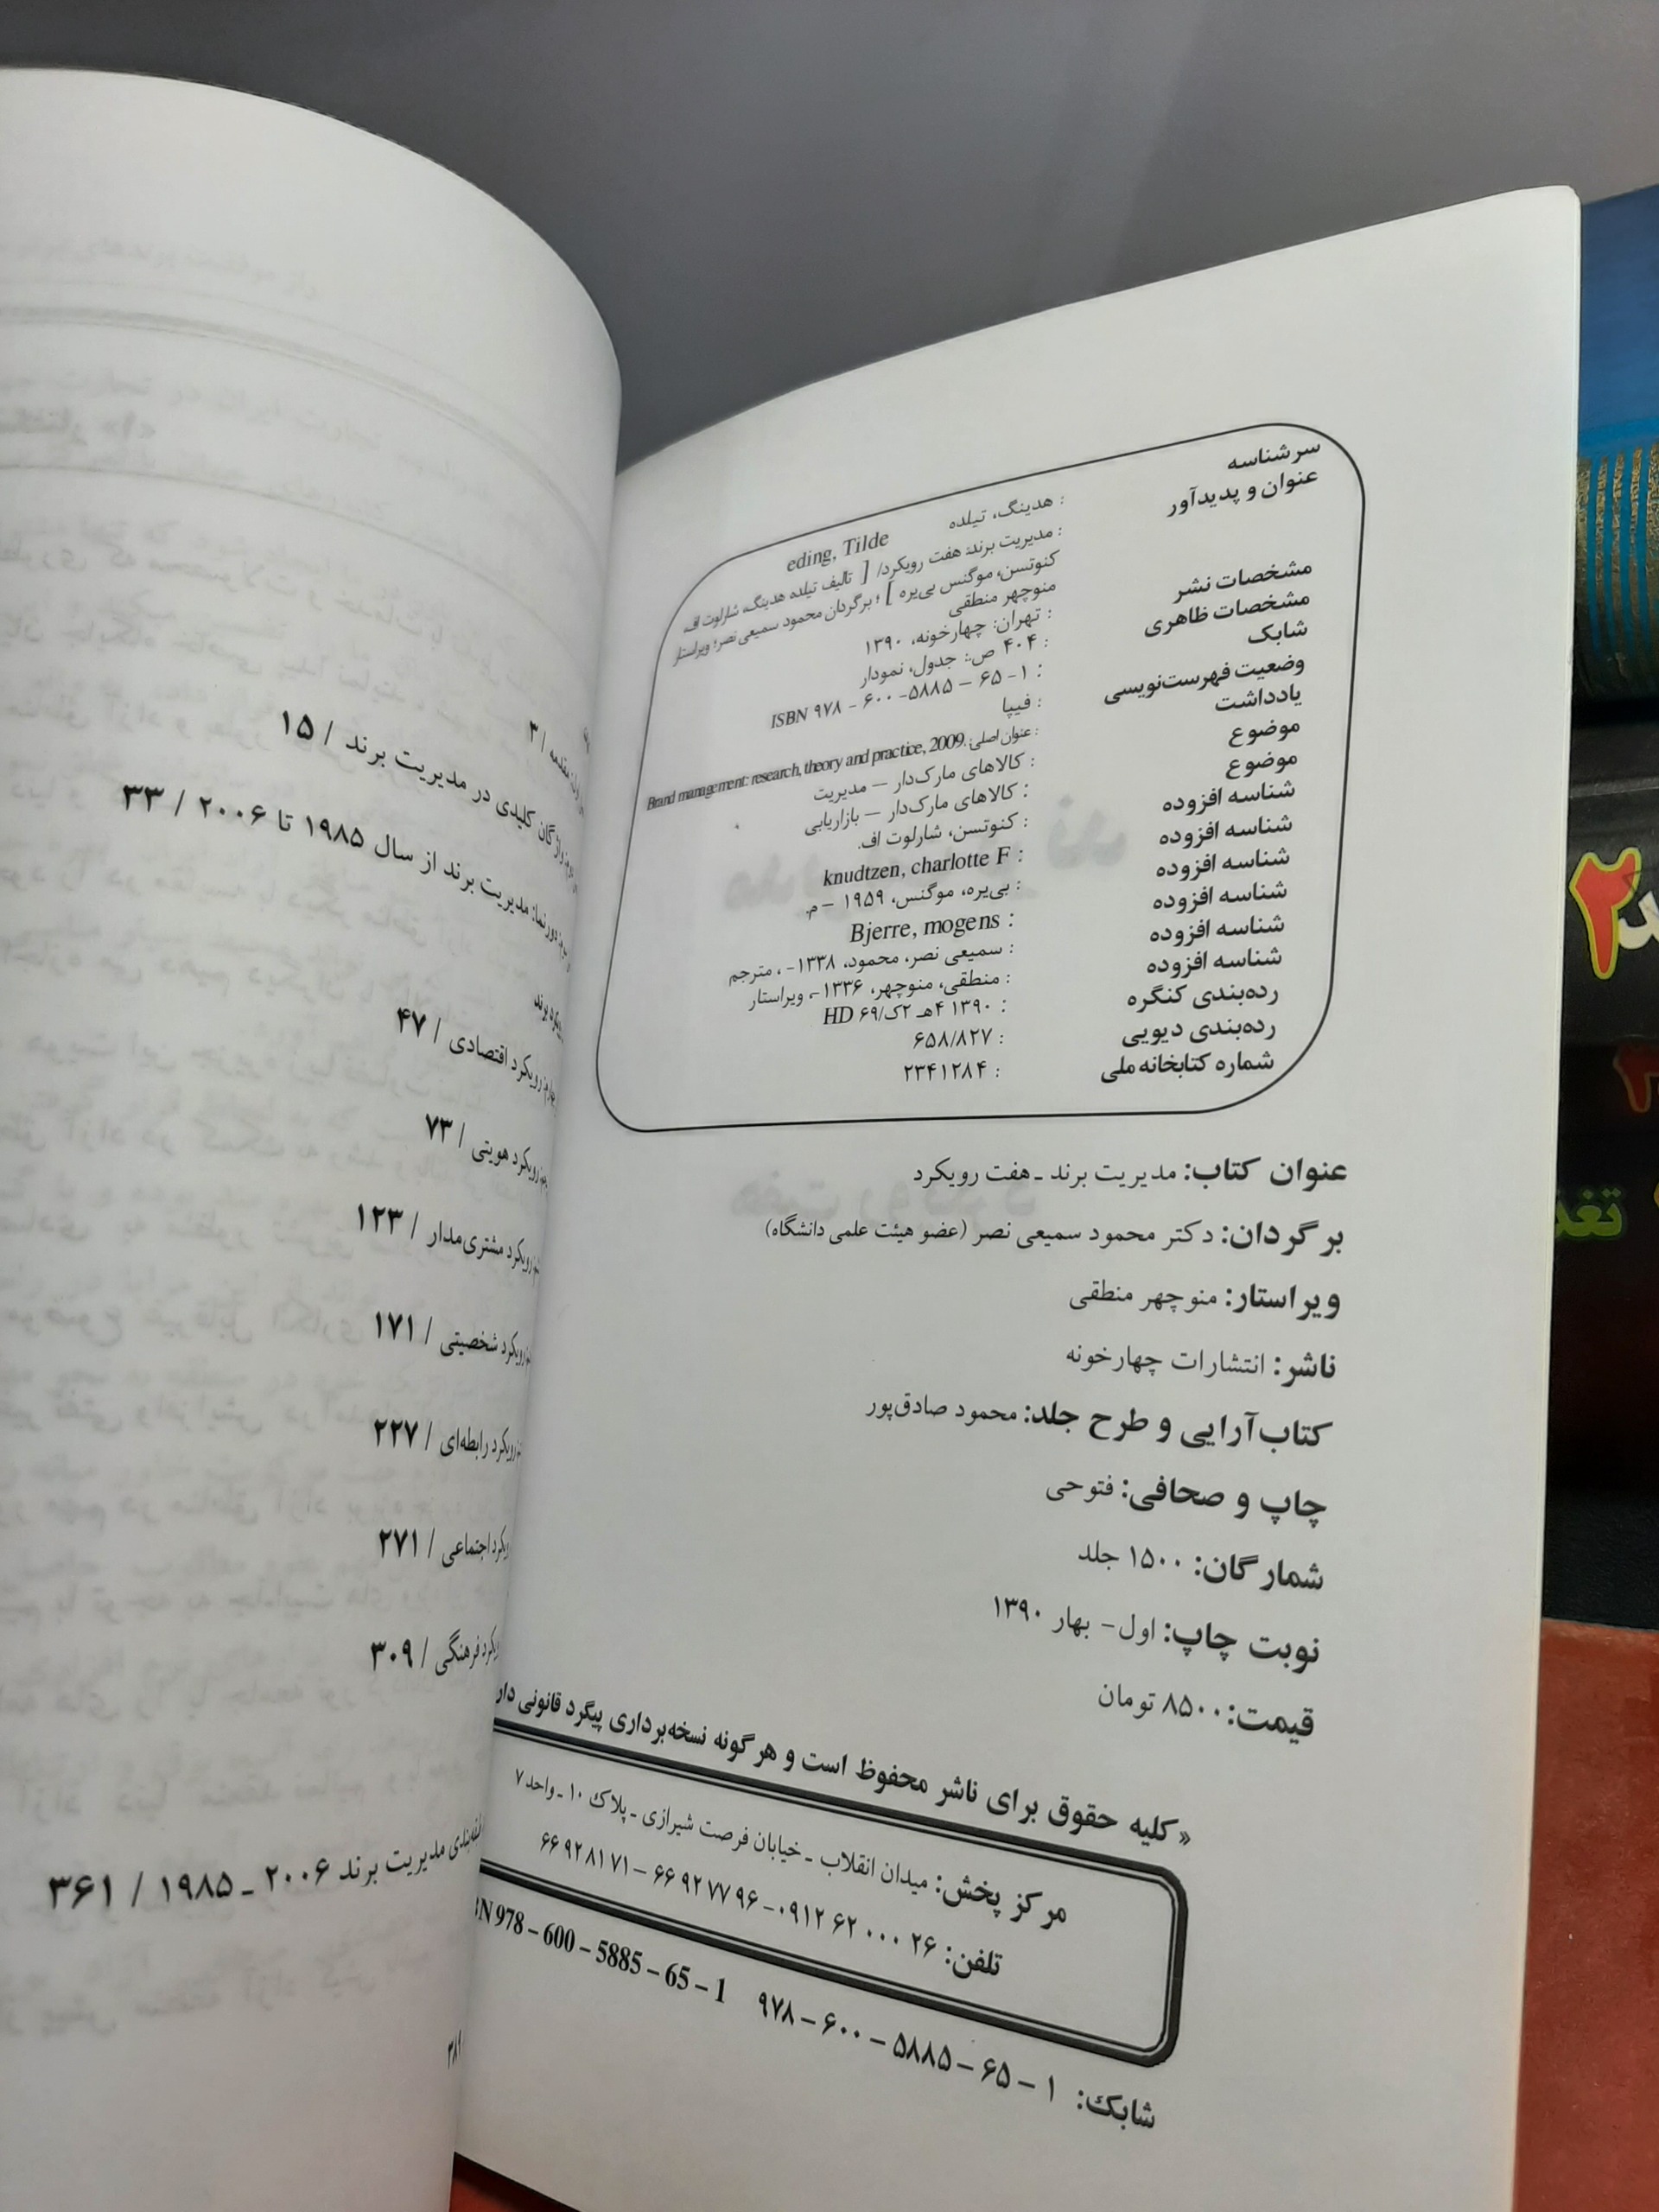 سرشناسه : هدینگ، تیلده eding, Tilde
عنوان و پدیدآور : مدیریت برند: هفت رویکرد/ [ تالیف تیلده هدینگ، شارلوت اف.
کنوتسن، موگنس بی‌یره ] ؛ برگردان محمود سمیعی نصر؛ ویراستار
منوچهر منطقی
مشخصات نشر : تهران: چهارخونه، ۱۳۹۰
مشخصات ظاهری : ۴۰۴ ص.: جدول، نمودار
شابک : ISBN ۹۷۸ - ۶۰۰ - ۵۸۸۵ - ۶۵ - ۱
وضعیت فهرست‌نویسی : فیپا
یادداشت : عنوان اصلی: Brand management: research, theory and practice, 2009.
موضوع : کالاهای مارک‌دار — مدیریت
موضوع : کالاهای مارک‌دار — بازاریابی
شناسه افزوده : کنوتسن، شارلوت اف.
شناسه افزوده : knudtzen, charlotte F
شناسه افزوده : بی‌یره، موگنس، ۱۹۵۹ - م.
شناسه افزوده : Bjerre, mogens
شناسه افزوده : سمیعی نصر، محمود، ۱۳۳۸- ، مترجم
شناسه افزوده : منطقی، منوچهر، ۱۳۳۶-، ویراستار
رده‌بندی کنگره : ۱۳۹۰ ۴هـ ۲ک/۶۹ HD
رده‌بندی دیویی : ۶۵۸/۸۲۷
شماره کتابخانه ملی : ۲۳۴۱۲۸۴
عنوان کتاب: مدیریت برند ـ هفت رویکرد
برگردان: دکتر محمود سمیعی نصر (عضو هیئت علمی دانشگاه)
ویراستار: منوچهر منطقی
ناشر: انتشارات چهارخونه
کتاب‌آرایی و طرح جلد: محمود صادق‌پور
چاپ و صحافی: فتوحی
شمارگان: ۱۵۰۰ جلد
نوبت چاپ: اول- بهار ۱۳۹۰
قیمت: ۸۵۰۰ تومان
«کلیه حقوق برای ناشر محفوظ است و هرگونه نسخه‌برداری پیگرد قانونی دار
مرکز پخش: میدان انقلاب ـ خیابان فرصت شیرازی ـ پلاک ۱۰ ـ واحد ۷
تلفن: ۲۶ ۰۰۰ ۶۲ ۰۹۱۲ - ۹۶ ۷۷ ۹۲ ۶۶ - ۷۱ ۸۱ ۹۲ ۶۶
شابک: ۱ - ۶۵ - ۵۸۸۵ - ۶۰۰ - ۹۷۸ BN 978 - 600 - 5885 - 65 - 1
مقدمه / ۳
واژگان کلیدی در مدیریت برند / ۱۵
دورنما: مدیریت برند از سال ۱۹۸۵ تا ۲۰۰۶ / ۳۳
برند
رویکرد اقتصادی / ۴۷
رویکرد هویتی / ۷۳
رویکرد مشتری‌مدار / ۱۲۳
رویکرد شخصیتی / ۱۷۱
رویکرد رابطه‌ای / ۲۲۷
یکرد اجتماعی / ۲۷۱
یکرد فرهنگی / ۳۰۹
مدیریت برند ۲۰۰۶ ـ ۱۹۸۵ / ۳۶۱
۲